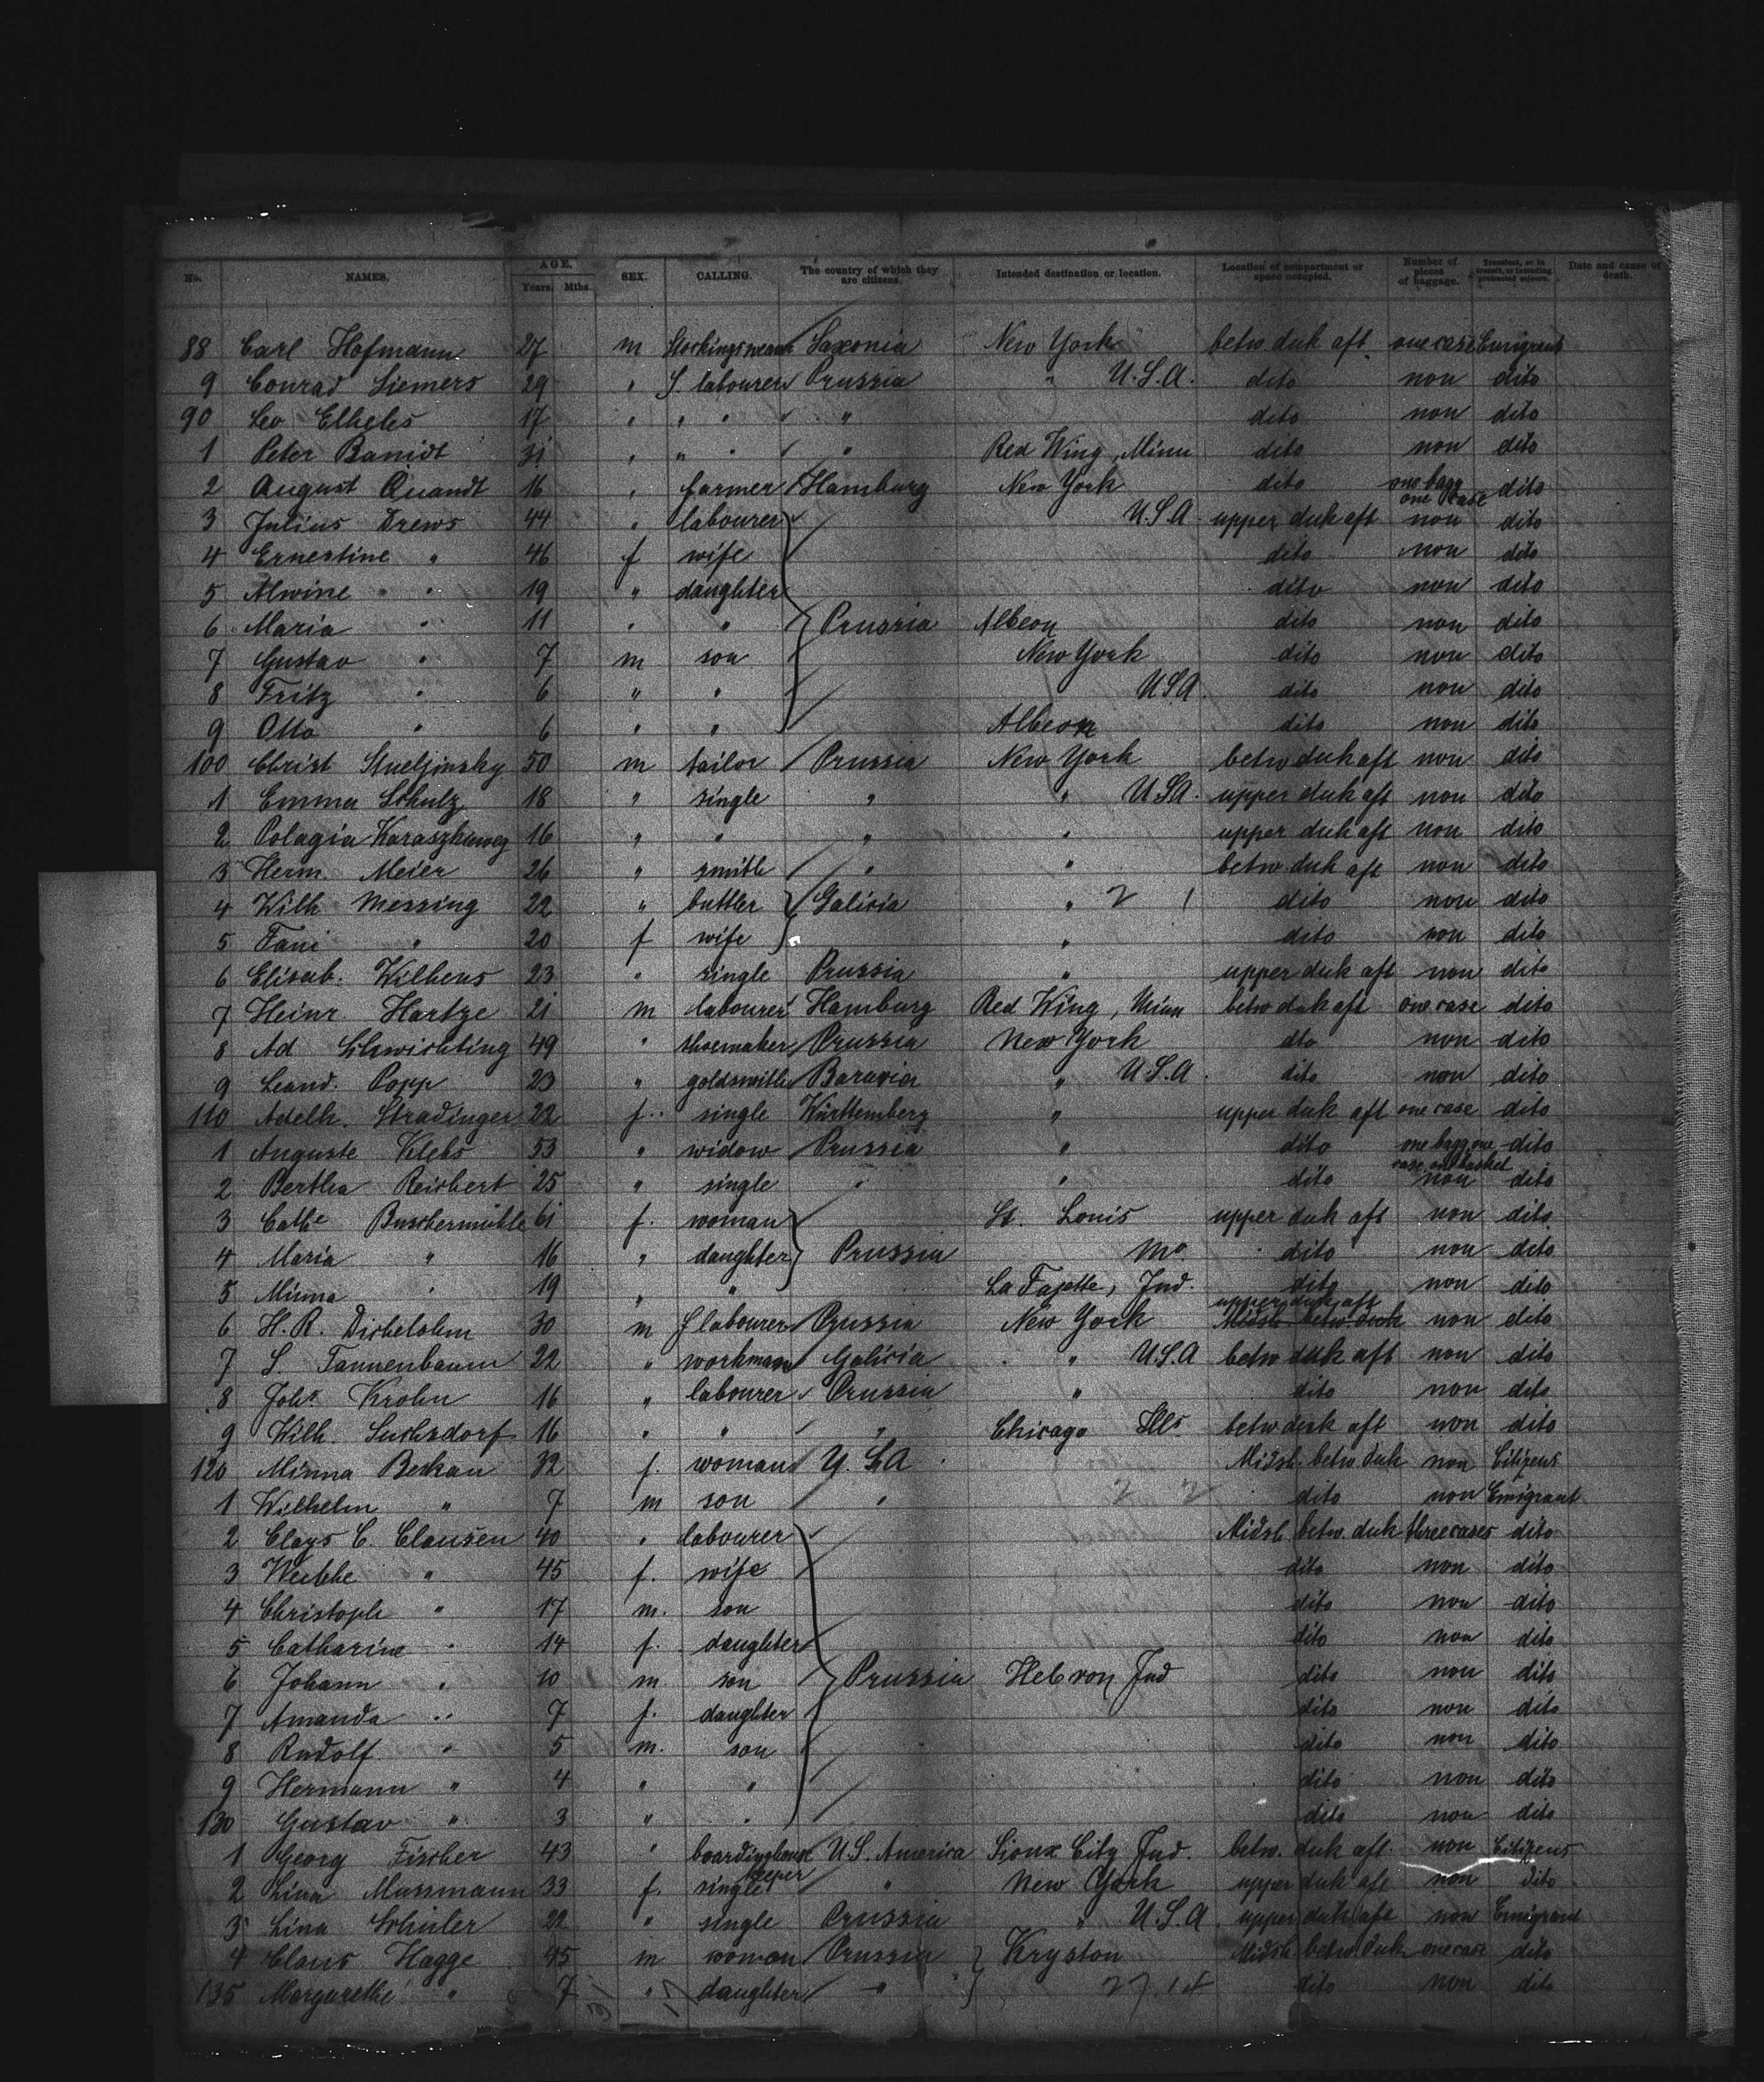 No. NAMES. AGE. Years Mths. SEX. CALLING. The country of which they are citizens. Intended destination or location. Location of compartment or space occupied. Number of pieces of baggage. Transient, or in transit, or intending protracted sojourn. Date and cause of death.
88 Carl Hofmann 27 m Saxonia New York betw duk aft one case Emigrant
9 Conrad Siemers 29 " S. labourer Prussia " U.S.A. dito non dito
90 Leo Elkeles 17 " " " " dito non dito
1 Peter Bamidt 31 " " " " Red Wing, Minn dito non dito
2 August Quandt 16 " farmer Hamburg New York dito one bagg one case dito
3 Julius Drews 44 " labourer U.S.A upper duk aft non dito
4 Ernestine " 46 f wife dito non dito
5 Alwine " 19 " daughter dito non dito
6 Maria " 11 " " Prussia Albeon dito non dito
7 Gustav " 7 m son New York dito non dito
8 Fritz " 6 " " U.S.A. dito non dito
9 Otto " 6 " " Albeon dito non dito
100 Christ 50 m tailor Prussia New York betw duk aft non dito
1 Emma Schulz 18 " single " " U.S.A. upper duk aft non dito
2 Polagia 16 " " " " upper duk aft non dito
3 Herm. Meier 26 " smith " " betw duk aft non dito
4 Wilh Messing 22 " buttler Galicia " 2 1 dito non dito
5 Fani " 20 f wife " dito non dito
6 Elisab. Wilkens 23 " single Prussia " upper duk aft non dito
7 Heinr. Hartge 21 m labourer Hamburg Red Wing, Minn betw duk aft one case dito
8 Ad Schwichting 49 " shoemaker Prussia New York dto non dito
9 Leand. Popp 23 " goldsmith Baravia " U.S.A. dito non dito
110 Adelh. Stradinger 22 f. single Württemberg " upper duk aft one case dito
1 Auguste Klebs 53 " widow Prussia " dito one bagg one case one basket dito
2 Bertha Reichert 25 " single " " dito non dito
3 Cathe Buschermühle 61 f. woman St. Louis upper duk aft non dito
4 Maria " 16 " daughter Prussia Mo dito non dito
5 Minna " 19 " " La Fajette, Ind. dito non dito
6 H. R. 30 m f labourer Prussia New York upper duk aft Midsh betw duck non dito
7 S. Tannenbaum 22 " workman Galicia " U.S.A betw duk aft non dito
8 Johs Krohn 16 " labourer Prussia " dito non dito
9 Wilh. Suchsdorf 16 " " " Chicago Ills. betw duk aft non dito
120 Minna Beckau 32 f. woman U. S. A. Midsh. betw duk non Citizens
1 Wilhelm " 7 m son " 2 2 dito non Emigrant
2 Clays C. Clausen 40 " labourer Midsh. betw. duk three cases dito
3 Wiebke " 45 f. wife dito non dito
4 Christoph " 17 m. son dito non dito
5 Catharine " 14 f. daughter dito non dito
6 Johann " 10 m son Prussia Hebron Ind dito non dito
7 Amanda " 7 f. daughter dito non dito
8 Rudolf " 5 m. son dito non dito
9 Hermann " 4 " " dito non dito
130 Gustav " 3 " " dito non dito
1 Georg Fischer 43 " boardinghouse keeper U.S. America Sioux City Ind. betw. duk aft. non Citizens
2 Lina Mussmann 33 f. single " New York upper duk aft non dito
3 Lina Schüler 22 " single Prussia " U.S.A. upper duk aft non Emigrant
4 Claus Hagge 45 m woman Prussia Kryston Midsh. betw. duk one case dito
135 Margarethe " 7 " daughter " dito non dito